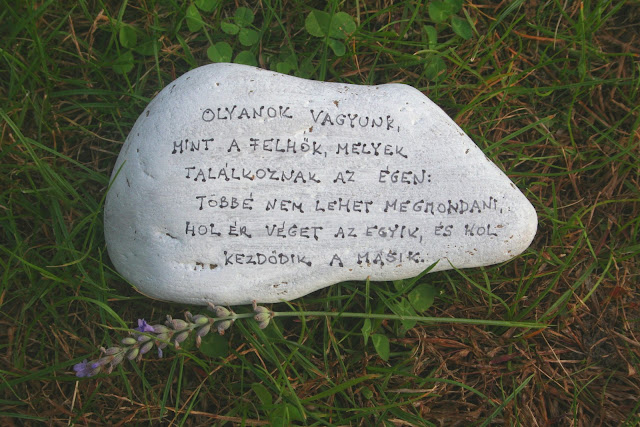 OLYANOK VAGYUNK,
MINT A FELHŐK, MELYEK
TALÁLKOZNAK AZ ÉGEN:
TÖBBÉ NEM LEHET MEGMONDANI,
HOL ÉR VÉGET AZ EGYIK, ÉS HOL
KEZDŐDIK A MÁSIK.